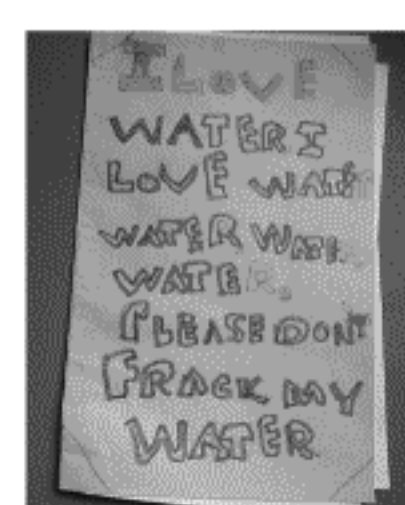 I LOVE
WATER I
LOVE WATER
WATER WATER
WATER.
PLEASE DONT
FRACK MY
WATER